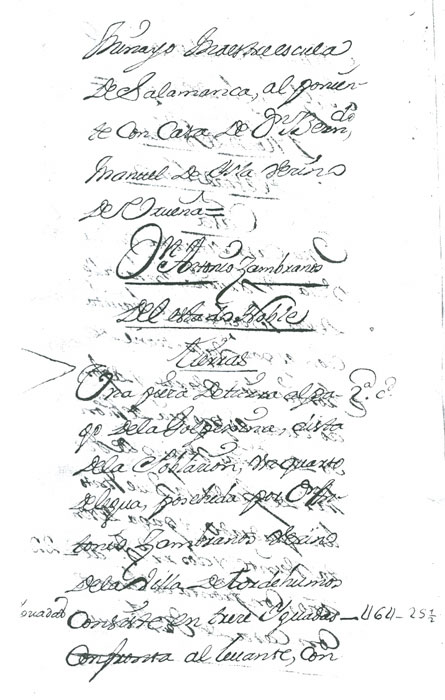 Maestre escuela
De Salamanca, al ponien-
te Con Casa De Dn Bern.do
Manuel De Vezino
De Urueña=
Dn Antonio Zambrano
Del estado Noble
tierras
Una pieza De tierra al pa- 2.a c.
go De la Golpexona, dista
De la Poblacion, un quarto
De legua, poseida por Dn An-
tonio Zambrano Vezino
De la Villa De tordehumos
Consiste en trece Yguadas - 464 - 25½
Confronta al levante, Con